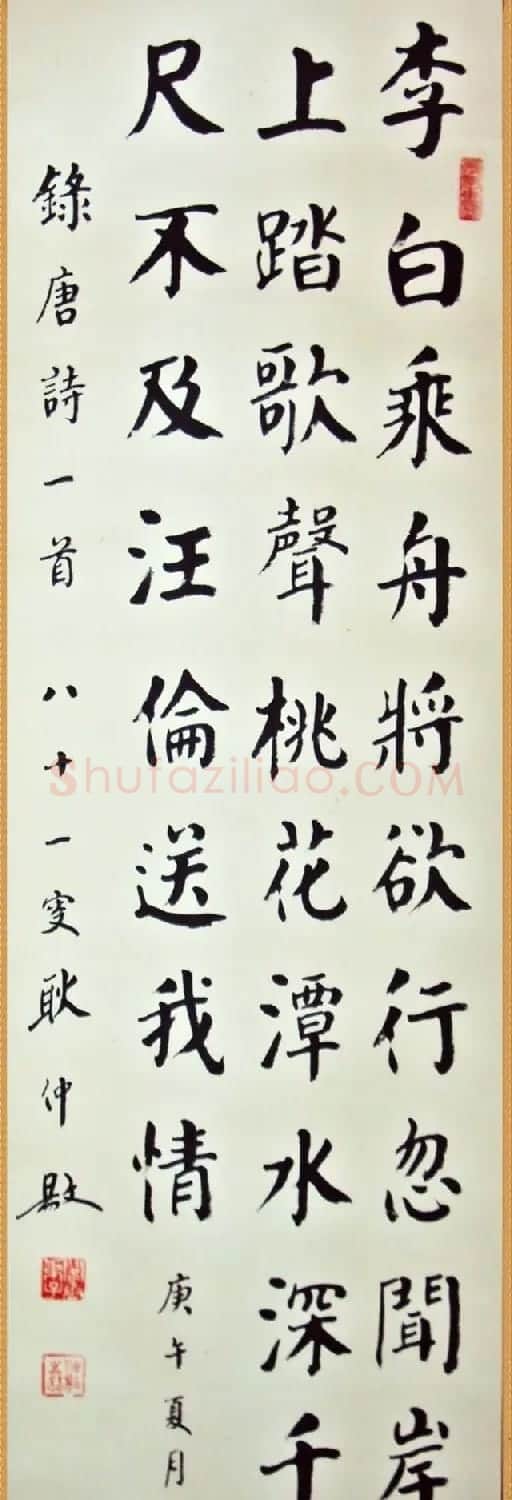 李白乘舟將欲行忽聞岸
上踏歌聲桃花潭水深千
尺不及汪倫送我情
庚午夏月
錄唐詩一首 八十一叟耿仲敭
Shufaziliao.COM